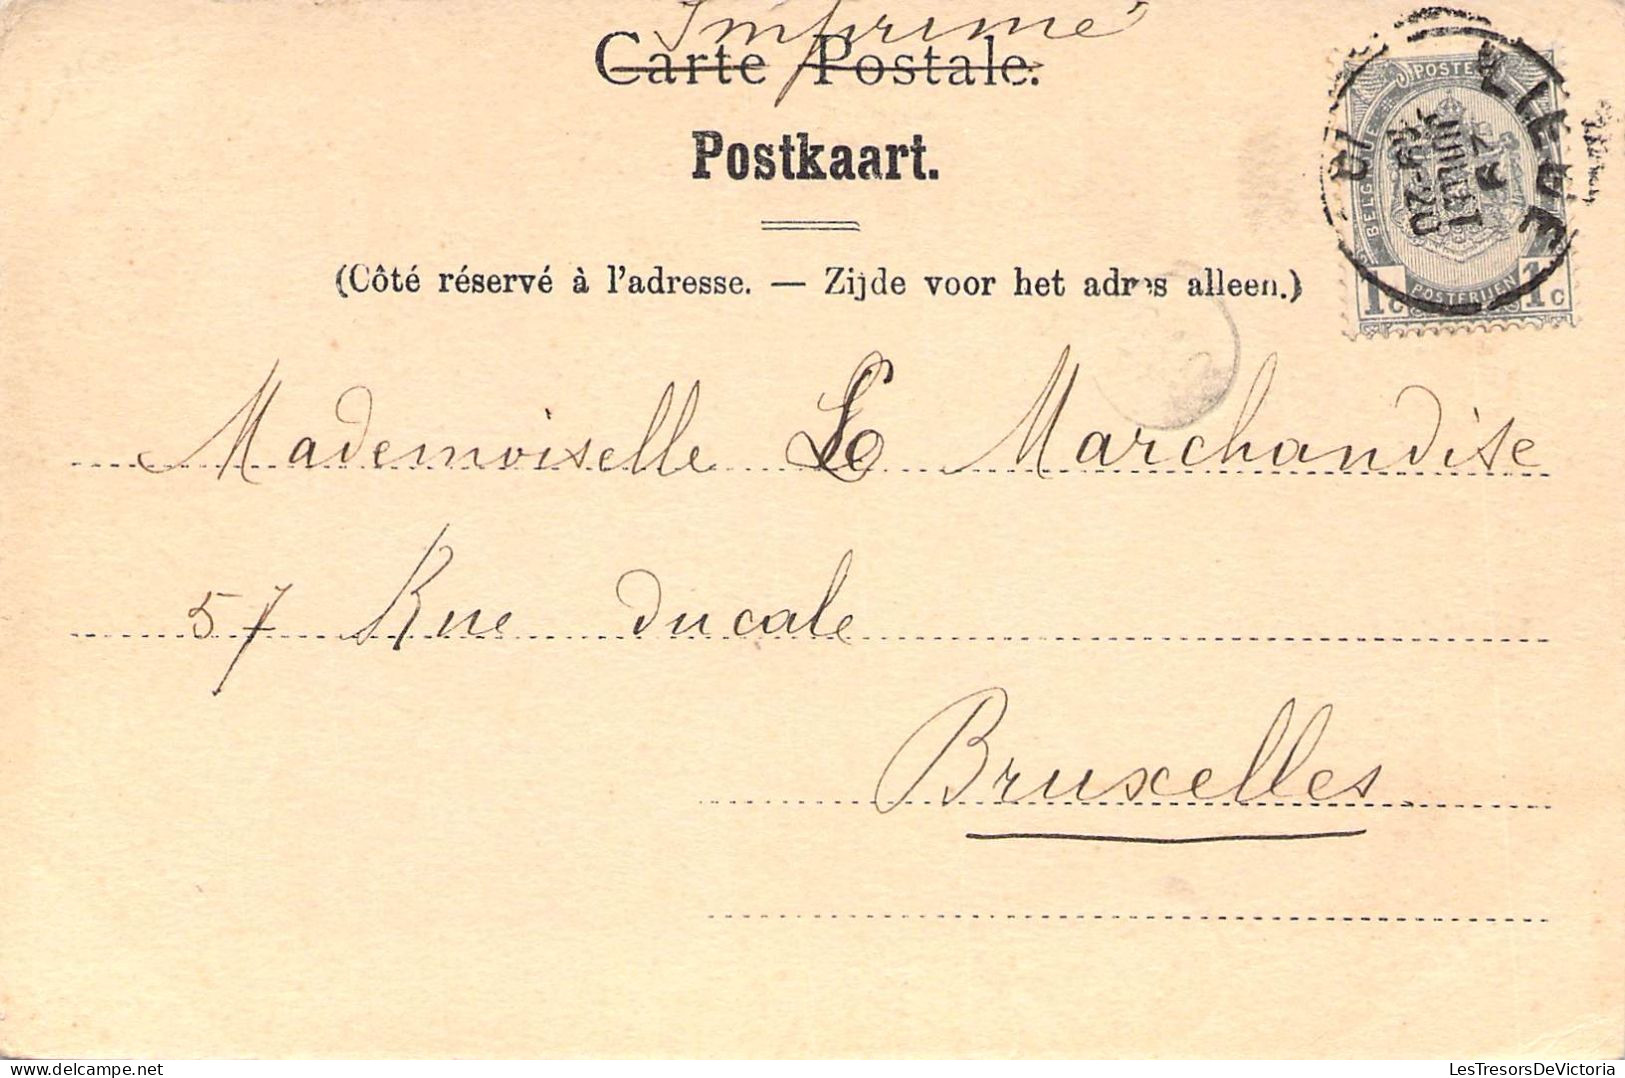 Imprimé
Carte Postale.
Postkaart.
(Côté réservé à l'adresse. — Zijde voor het adres alleen.)
POSTES
BELGIQUE
1c POSTERIJEN 1c
JUILLET
Mademoiselle Le Marchandise
57 Rue Ducale
Bruxelles
LesTresorsDeVictoria